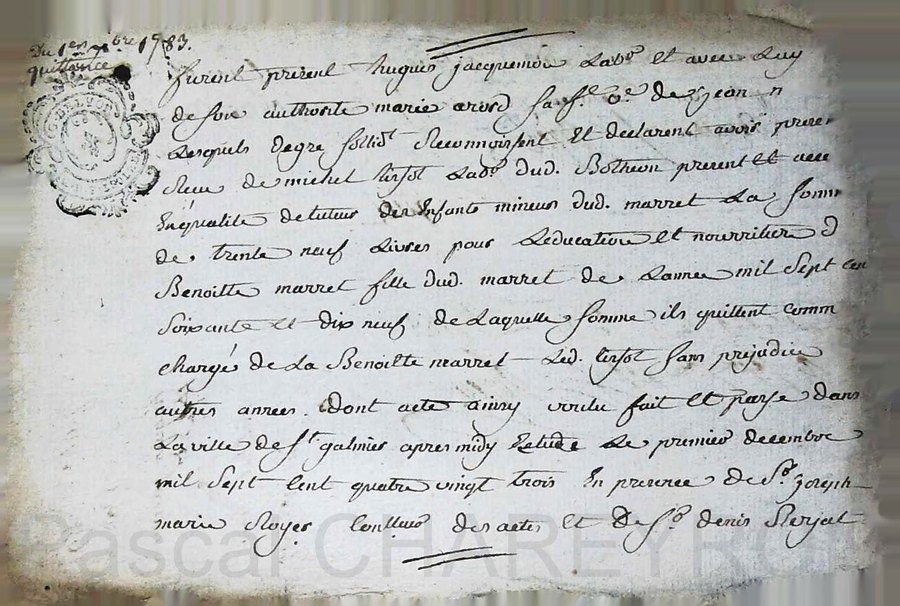 Du 1er xbre 1783.
quittance
furent présent hugues jacquemon Labr. et avec Luy
de son authorité marie arosd sa fe. ve. de jean
Lesquels de gré sollidt. Reconnoissent et déclarent avoir présen
Reçu de michel tissot Labr. dud. Botheon présent et acce
En qualité de tuteur des Enfants mineurs dud. marret La som
de trente neuf Livres pour L'éducation et nourriture d
Benoitte marret fille dud. marret de L'année mil sept cen
soixante et dix neuf de Laquelle somme ils quittent comm
chargé de La Benoitte marret Led. tissot sans préjudice
autres années. Dont acte ainsy voulu fait et passé dans
La ville de St. galmier apres midy Etude Le premier decembre
mil sept cent quatre vingt trois En présence de Sr. joseph
marie Royer Conlleur des actes et de Sr. denis
Pascal CHAREYRON